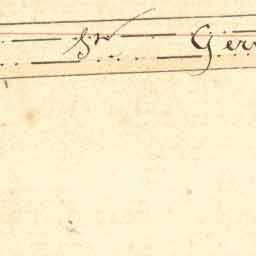 St Ger